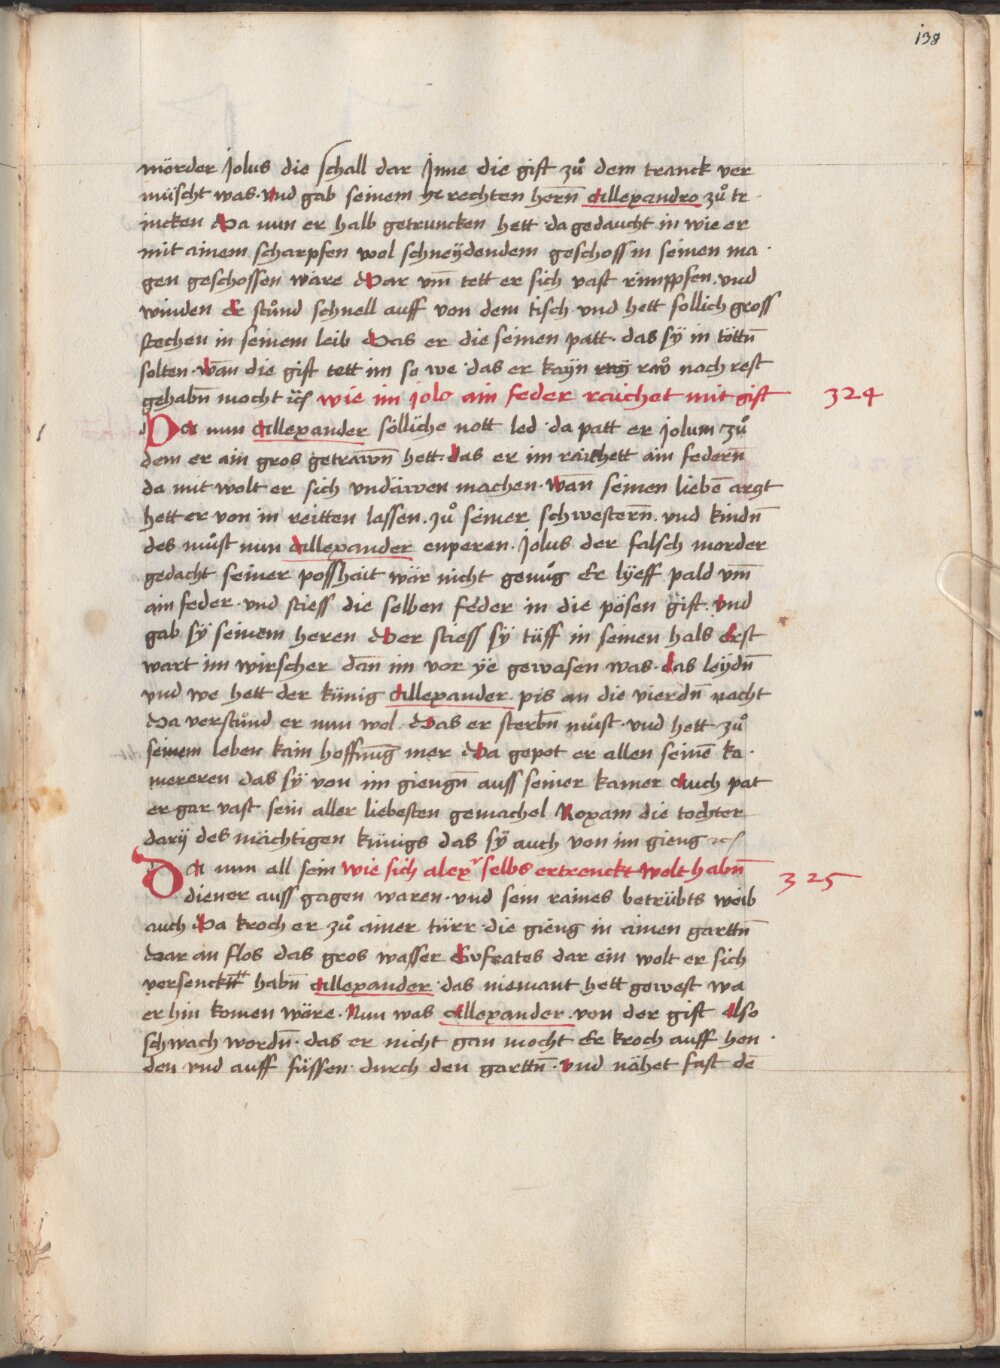 138
mörder Jolus die schall dar Jnne die gift zuͦ dem tranck ver
müscht was · vnd gab seinem he rechten herñ allexandro zuͦ tr
incken Da nun er halb getruncken hett da gedaucht in wie er
mit ainem scharpfen wol schneÿdendem geschoss in seinen ma ·
gen geschossen wäre Dar vm̄ tett er sich vast rimppfen · vnd
winden er stuͦnd schnell auff von dem tisch · vnd hett sollich gross
stechen in seinem leib Das er die seinen patt · das sÿ in töttñ
solten · wān die gift tett im so we das er kayn raw noch rest
gehabñ mocht wie im jolo ain feder raichet mit gift
324
Da nun allexander sölliche nott led · da patt er jolum zuͦ
dem er ain gros getrawñ hett · das er im raichett ain federñ
da mit wolt er sich vndäwen machen · wan seinen liebē artzt
hett er von in reitten lassen · zuͦ seiner schwesterñ · vnd kindñ
des muͦst nun allexander enperen · Jolus der falsch morder
gedacht seiner posshait wär nicht genuͦg Er lÿeff pald vm̄
ain feder · vnd stiess die selben feder in die pösen gift · vnd
gab sÿ seinem heren der stiess sÿ tüff in seinen hals erst
wart im wirscher dañ im vor ÿe gewesen was · das leÿdñ
vnd we hett der künig allexander · pis an die vierdñ nacht
Da verstuͦnd er nun wol · Das er sterbñ muͦst · vnd hett zuͦ
seinem leben kain hoffnūg mer Da gepot er allen seinē ka ·
mereren das sÿ von im giengñ auss seiner kamer auch pat
er gar vast sein aller liebesten gemachel Roxam die tochter
darÿ des mächtigen künigs das sÿ auch von im gieng ꝛc
Da nun all sein wie sich alexr selbs ertrenckt wolt habñ
325
diener auss gagen waren · vnd sein raines betrübts weib
auch Da kroch er zuͦ ainer türr · die gieng in ainen garttñ
Dar an flos das gros wasser Eofrates dar ein wolt er sich
versencktt habñ allexander · das niemant hett gewest wa
er hin komen wäre · Nun was allexander · von der gift also
schwach wordñ · das er nicht gan mocht Er kroch auff hen ·
den vnd auff füssen · durch den garttñ · vnd nähet fast dē